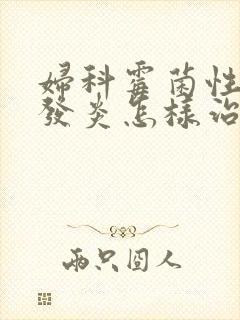 婦科霉菌性
發炎怎樣治
兩只囧人